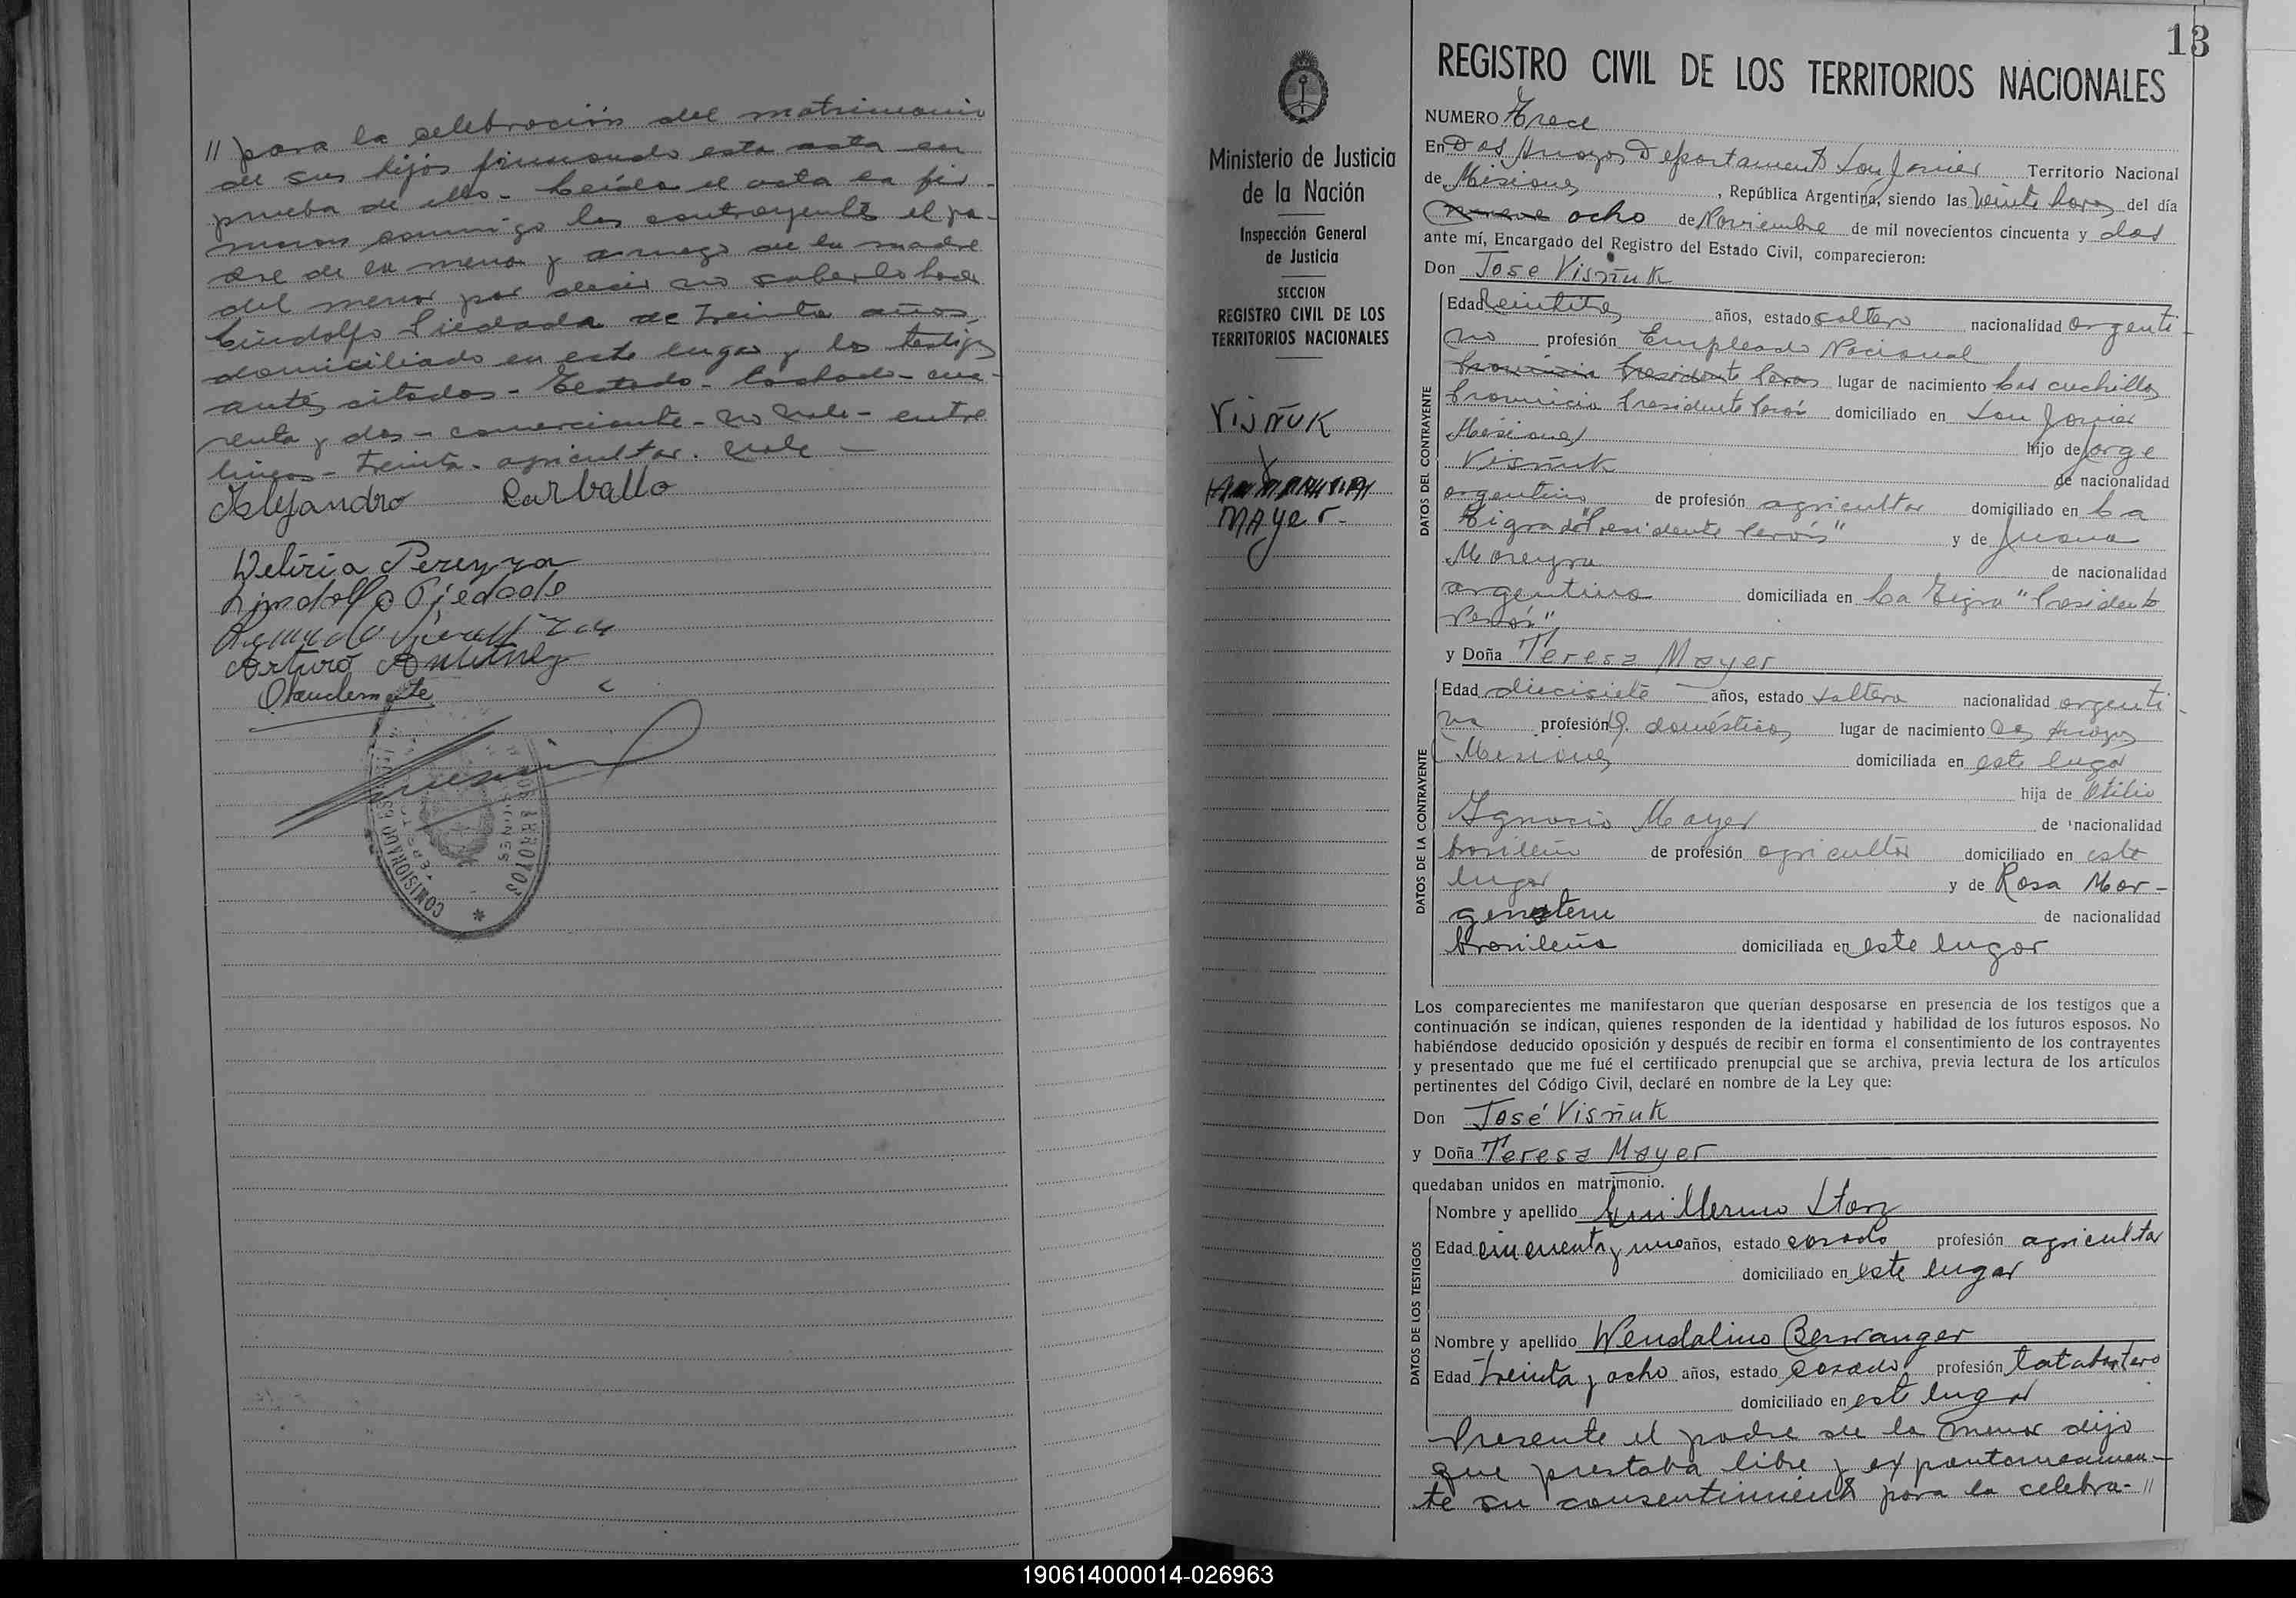 // para la celebración del matrimonio
de sus hijos firmando esta acta en
prueba de ello - Leída el acta la fir-
maron conmigo los contrayentes el pa-
dre de la menor y a ruego de la madre
del menor por decir no saberlo hacer
Lindolfo Piedada de treinta años,
domiciliado en este lugar y los testigos
antes citados - Testado - casado - cua-
renta y dos - comerciante - no vale - entre
lineas - treinta - agricultor. vale -
Alejandro Carballo
Deliria Pereyra
Lindolfo Piedade
Arturo
COMISIONADO
ARROYOS
Ministerio de Justicia
de la Nación
Inspección General
de Justicia
SECCION
REGISTRO CIVIL DE LOS
TERRITORIOS NACIONALES
VISÑUK
Y
MAYER-
13
REGISTRO CIVIL DE LOS TERRITORIOS NACIONALES
NUMERO Trece
En Dos Arroyos Departamento San Javier Territorio Nacional
de Misiones, República Argentina, siendo las veinte horas del día
nueve ocho de Noviembre de mil novecientos cincuenta y dos
ante mí, Encargado del Registro del Estado Civil, comparecieron:
Don José Visñuk
DATOS DEL CONTRAYENTE
Edad veintitres años, estado soltero nacionalidad argenti-
no profesión Empleado Nacional
Provincia Presidente Perón lugar de nacimiento Las cuchillas
Provincia Presidente Perón domiciliado en San Javier
Misiones hijo de Jorge
Visñuk de nacionalidad
argentino de profesión agricultor domiciliado en La
Tigra "Presidente Perón" y de Juana
Moreyra de nacionalidad
argentina domiciliada en La Tigra "Presidente
Perón"
y Doña Teresa Mayer
DATOS DE LA CONTRAYENTE
Edad diecisiete años, estado soltera nacionalidad argenti-
na profesión Q. domésticos lugar de nacimiento Dos Arroyos
Misiones domiciliada en este lugar
hija de Otilio
Ignacio Mayer de nacionalidad
brasileño de profesión agricultor domiciliado en este
lugar y de Rosa Mor-
genstern de nacionalidad
brasileña domiciliada en este lugar
Los comparecientes me manifestaron que querían desposarse en presencia de los testigos que a
continuación se indican, quienes responden de la identidad y habilidad de los futuros esposos. No
habiéndose deducido oposición y después de recibir en forma el consentimiento de los contrayentes
y presentado que me fué el certificado prenupcial que se archiva, previa lectura de los artículos
pertinentes del Código Civil, declaré en nombre de la Ley que:
Don José Visñuk
y Doña Teresa Mayer
quedaban unidos en matrimonio.
DATOS DE LOS TESTIGOS
Nombre y apellido Guillermo
Edad cincuenta y uno años, estado casado profesión agricultor
domiciliado en este lugar
Nombre y apellido Wendalino Berwanger
Edad treinta y ocho años, estado casado profesión
domiciliado en este lugar
Presente el padre de la menor dijo
que prestaba libre y expontaneamen-
te su consentimiento para la celebra- //
190614000014-026963